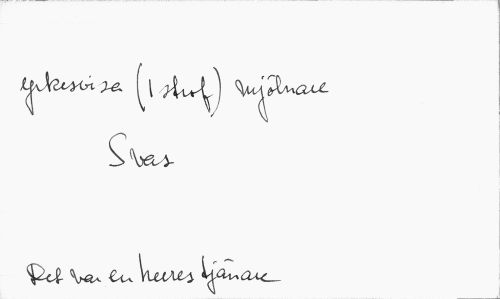 yrkesvisa (1 strof) mjölnare
Svas
Det var en herres tjänare